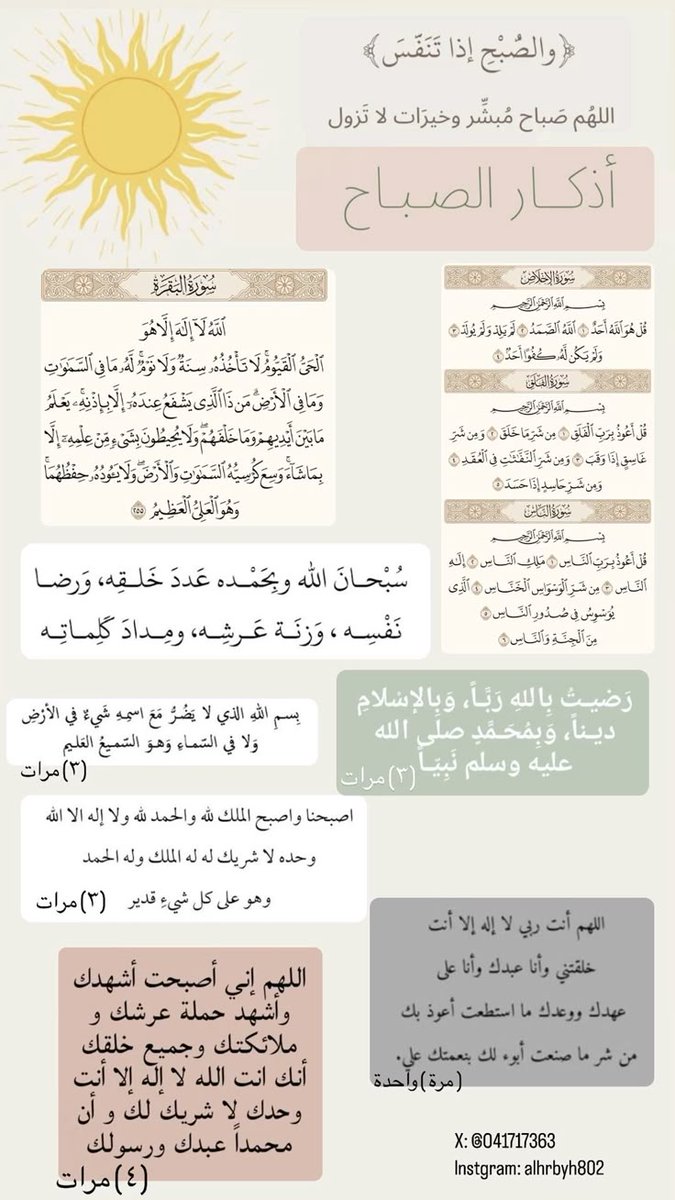 ﴿والصُبْحِ إذا تَنَفَّسَ﴾
اللهُم صَباح مُبشِّر وخيرَات لا تَزول
أذكـــار الصبـاح
سُورَةُ البَقَرَة
اللَّهُ لَا إِلَٰهَ إِلَّا هُوَ
الْحَيُّ الْقَيُّومُ ۚ لَا تَأْخُذُهُ سِنَةٌ وَلَا نَوْمٌ ۚ لَّهُ مَا فِي السَّمَاوَاتِ
وَمَا فِي الْأَرْضِ ۗ مَن ذَا الَّذِي يَشْفَعُ عِندَهُ إِلَّا بِإِذْنِهِ ۚ يَعْلَمُ
مَا بَيْنَ أَيْدِيهِمْ وَمَا خَلْفَهُمْ ۖ وَلَا يُحِيطُونَ بِشَيْءٍ مِّنْ عِلْمِهِ إِلَّا
بِمَا شَاءَ ۚ وَسِعَ كُرْسِيُّهُ السَّمَاوَاتِ وَالْأَرْضَ ۖ وَلَا يَئُودُهُ حِفْظُهُمَا ۚ
وَهُوَ الْعَلِيُّ الْعَظِيمُ ٢٥٥
سُورَةُ الإِخْلَاصِ
بِسْمِ اللَّهِ الرَّحْمَٰنِ الرَّحِيمِ
قُلْ هُوَ اللَّهُ أَحَدٌ ١ اللَّهُ الصَّمَدُ ٢ لَمْ يَلِدْ وَلَمْ يُولَدْ ٣
وَلَمْ يَكُن لَّهُ كُفُوًا أَحَدٌ ٤
سُورَةُ الفَلَقِ
بِسْمِ اللَّهِ الرَّحْمَٰنِ الرَّحِيمِ
قُلْ أَعُوذُ بِرَبِّ الْفَلَقِ ١ مِن شَرِّ مَا خَلَقَ ٢ وَمِن شَرِّ
غَاسِقٍ إِذَا وَقَبَ ٣ وَمِن شَرِّ النَّفَّاثَاتِ فِي الْعُقَدِ ٤
وَمِن شَرِّ حَاسِدٍ إِذَا حَسَدَ ٥
سُورَةُ النَّاسِ
بِسْمِ اللَّهِ الرَّحْمَٰنِ الرَّحِيمِ
قُلْ أَعُوذُ بِرَبِّ النَّاسِ ١ مَلِكِ النَّاسِ ٢ إِلَٰهِ
النَّاسِ ٣ مِن شَرِّ الْوَسْوَاسِ الْخَنَّاسِ ٤ الَّذِي
يُوَسْوِسُ فِي صُدُورِ النَّاسِ ٥
مِنَ الْجِنَّةِ وَالنَّاسِ ٦
سُبْحـانَ الله وبِحَمْـده عَـددَ خَلـقِه، وَرضـا
نَفْسِـه ، وَزنَـة عَـرشِـه، ومِـدادَ كَلِمـاتِـه
بِسـمِ اللهِ الذي لا يَضُـرُّ مَعَ اسمِـهِ شَيءٌ في الأرْضِ
وَلا في السّمـاءِ وَهـوَ السّمـيعُ العَليم
(٣)مرات
رَضيـتُ بِاللهِ رَبَّـاً، وَبِالإسْلامِ
ديـناً، وَبِمُحَمَّـدٍ صلى الله
عليه وسلم نَبِيّـاً
(٣)مرات
اصبحنا واصبح الملك لله والحمد لله ولا إله الا الله
وحده لا شريك له له الملك وله الحمد
وهو على كل شيءِ قدير
(٣)مرات
اللهم أنت ربي لا إله إلا أنت
خلقتني وأنا عبدك وأنا على
عهدك ووعدك ما استطعت أعوذ بك
من شر ما صنعت أبوء لك بنعمتك علي.
(مرة)واحدة
اللهم إني أصبحت أشهدك
وأشهد حملة عرشك و
ملائكتك وجميع خلقك
أنك انت الله لا إله إلا أنت
وحدك لا شريك لك و أن
محمداً عبدك ورسولك
(٤)مرات
X: @041717363
Instgram: alhrbyh802